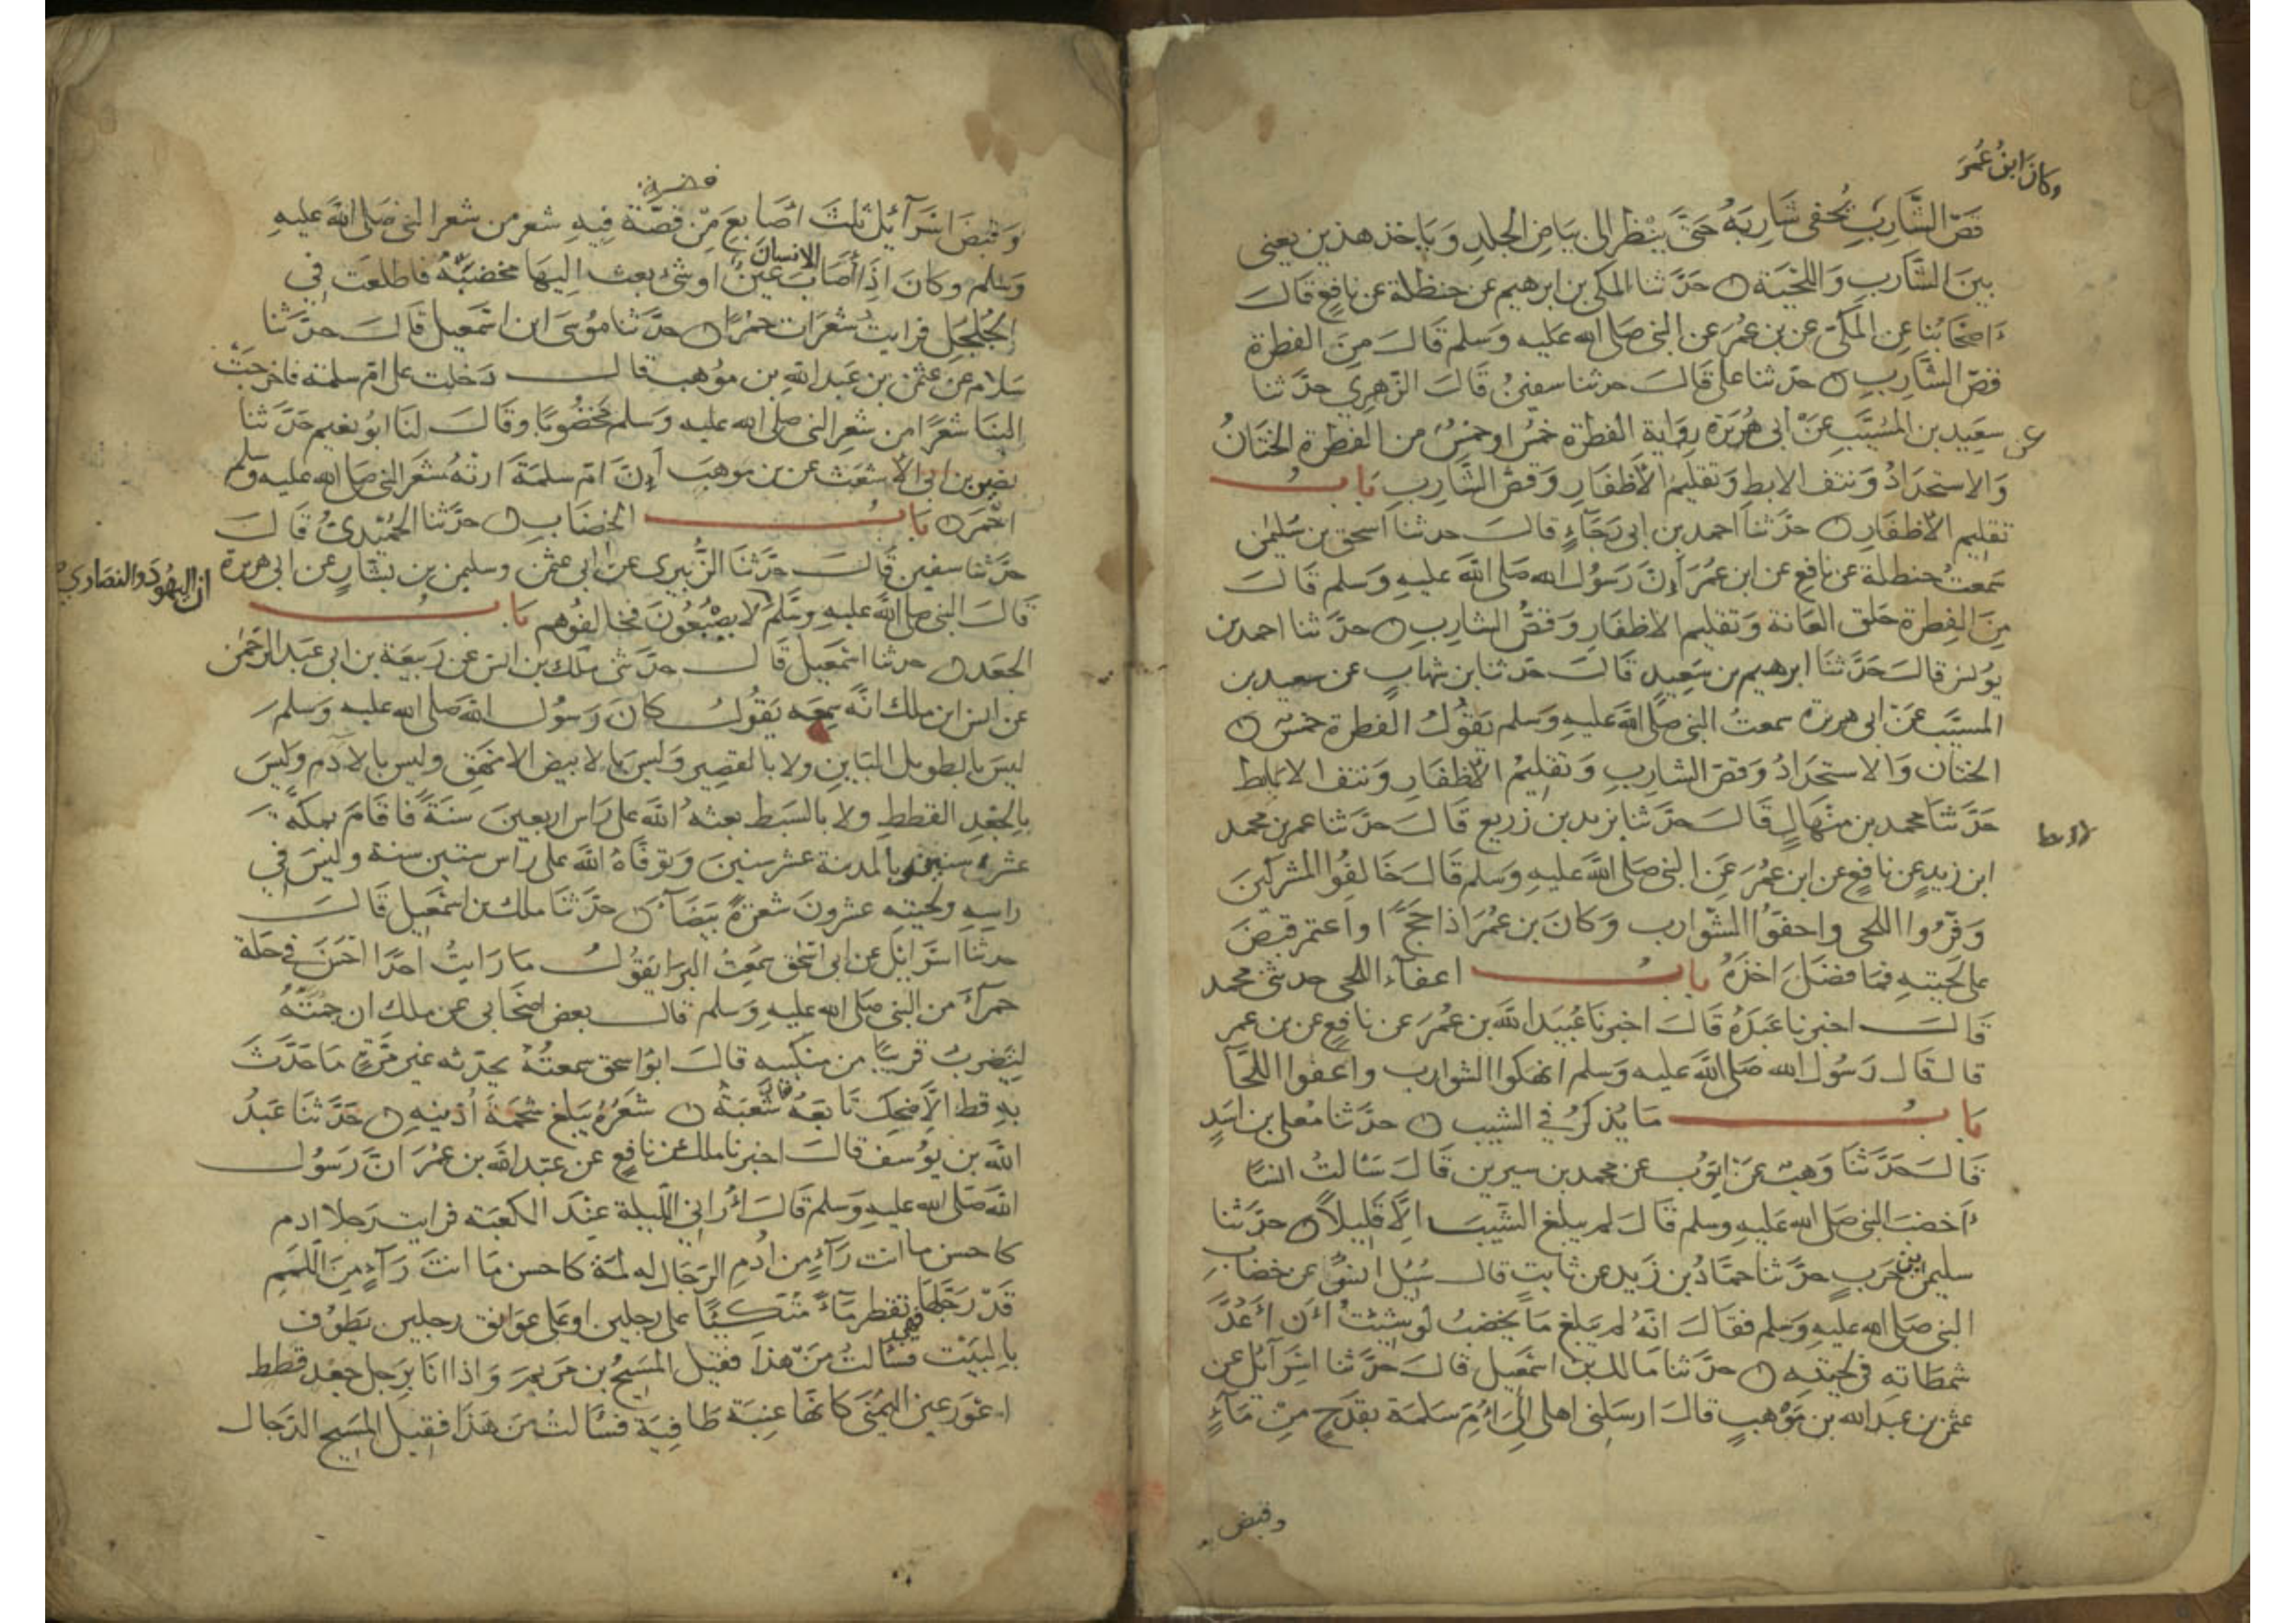 وكان ابن عمر
قص الشارب يُحفى شاربه حتى ينظر الى بياض الجلد وياخذ هذين يعنى
بين الشارب واللحية حدثنا المكى بن ابرهيم عن حنظلة عن نافع قال
اصحابنا عن المكى عن بن عمر عن النبى صلى الله عليه وسلم قال من الفطرة
قص الشارب حدثنا على قال حدثنا سفين قال الزهرى حدثنا
عن سعيد بن المسيب عن ابى هريرة رواية الفطرة خمس او خمس من الفطرة الختان
والاستحداد ونتف الابط وتقليم الاظفار وقص الشارب باب
تقليم الاظفار حدثنا احمد بن ابى رجاء قال حدثنا اسحق بن سليمن
سمعت حنظلة عن نافع عن ابن عمر ان رسول الله صلى الله عليه وسلم قال
من الفطرة حلق العانة وتقليم الاظفار وقص الشارب حدثنا احمد بن
يونس قال حدثنا ابرهيم بن سعيد قال حدثنا بن شهاب عن سعيد بن
المسيب عن ابى هريرة سمعت النبى صلى الله عليه وسلم يقول الفطرة خمس
الختان والاستحداد وقص الشارب وتقليم الاظفار ونتف الاباط
حدثنا محمد بن منهال قال حدثنا يزيد بن زريع قال حدثنا عمر بن محمد
ابن زيد عن نافع عن ابن عمر عن النبى صلى الله عليه وسلم قال خالفوا المشركين
وفروا اللحى واحفوا الشوارب وكان بن عمر اذا حج او اعتمر قبض
على لحيته فما فضل اخذه باب اعفاء اللحى حدثنى محمد
قال اخبرنا عبده قال اخبرنا عبيد الله بن عمر عن نافع عن بن عمر
قال قال رسول الله صلى الله عليه وسلم انهكوا الشوارب واعفوا اللحا
باب ما يذكر فى الشيب حدثنا معلى بن اسد
قال حدثنا وهيب عن ايوب عن محمد بن سيرين قال سئالت انسا
أخضب النبى صلى الله عليه وسلم قال لم يبلغ الشيب الا قليلا حدثنا
سليمن بن حرب حدثنا حماد بن زيد عن ثابت قال سئل انس عن خضاب
النبى صلى الله عليه وسلم فقال انه لم يبلغ ما يخضب لو شئت ان اعد
شمطاته فى لحيته حدثنا مالك بن اسمعيل قال حدثنا اسرائل عن
عثمن بن عبد الله بن موهب قال ارسلنى اهلى الى ام سلمة بقدح من ماء
وقبض
وقبض اسرآئل ثلث اصابع من قصة فيه شعر من شعر النبى صلى الله عليه
وسلم وكان اذا اصاب الانسان عين او شئ بعث اليها مخضبه فاطلعت فى
الجلجل فرايت شعرات حمرا حدثنا موسى ابن اسمعيل قال حدثنا
سلام عن عثمن بن عبد الله بن موهب قال دخلت على ام سلمة فاخرجت
الينا شعرا من شعر النبى صلى الله عليه وسلم مخضوبا وقال لنا ابو نعيم حدثنا
نصير بن ابى الاشعث عن بن موهب ان ام سلمة ارته شعر النبى صلى الله عليه وسلم
احمر باب الخضاب حدثنا الحميدى قال
حدثنا سفين قال حدثنا الزبيرى عن ابى عثمن وسليمن بن بشار عن ابى هريرة
ان اليهود والنصارى
قال النبى صلى الله عليه وسلم لا يصبغون فخالفوهم باب
الجعد حدثنا اسمعيل قال حدثنى ملك بن انس عن ربيعة بن ابى عبد الرحمن
عن انس ابن ملك انه سمعه يقول كان رسول الله صلى الله عليه وسلم
ليس بالطويل البابن ولا بالقصير وليس بالابيض الامهق وليس بالادم وليس
بالجعد القطط ولا بالسبط بعثه الله على راس اربعين سنة فاقام بمكة
عشر سنين وبالمدينة عشر سنين وتوفاه الله على راس ستين سنة وليس فى
راسه ولحيته عشرون شعرة بيضآء حدثنا ملك بن اسمعيل قال
حدثنا اسرائل عن ابى اسحق سمعت البرا يقول ما رايت احدا احسن فى حلة
حمرآء من النبى صلى الله عليه وسلم قال بعض اصحابى عن ملك ان جمته
لتضرب قريبا من منكبيه قال ابو اسحق سمعته يحدثه غير مرة ما حدث
به قط الا ضحك تابعه شعبة قال شعره يبلغ شحمة اذنيه حدثنا عبد
الله بن يوسف قال اخبرنا ملك عن نافع عن عبد الله بن عمر ان رسول
الله صلى الله عليه وسلم قال أرانى الليلة عند الكعبة فرايت رجلا ادم
كاحسن ما انت رآء من ادم الرجال له لمة كاحسن ما انت رآء من اللمم
قد رجلها فهى تقطر ماء متكيئا على رجلين او على عواتق رجلين يطوف
بالبيت فسئالت من هذا فقيل المسيح بن مريم واذا انا برجل جعد قطط
اعور عين اليمنى كانها عنبة طافية فسئالت من هذا فقيل المسيح الدجال